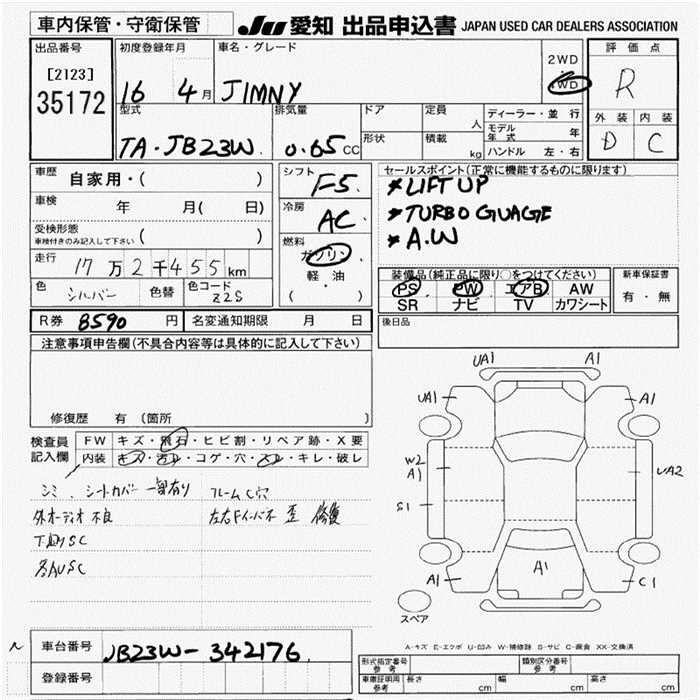 車内保管・守衛保管 JU 愛知 出品申込書 JAPAN USED CAR DEALERS ASSOCIATION
出品番号 初度登録年月 車名・グレード 評価点
[2123] 2WD
35172 16 4月 JIMNY 4WD R
型式 排気量 ドア 定員 人 ディーラー・並行 外装 内装
モデル年式 年
TA・JB23W 0.65CC 形状 積載 kg ハンドル 左・右 D C
車歴 自家用・( ) シフト F5 セールスポイント(正常に機能するものに限ります)
* LIFT UP
車検 年 月( 日) 冷房 AC * TURBO GUAGE
受検形態 ( ) * A.W
車検付きのみ記入して下さい
燃料 ガソリン
走行 17万2千455km 軽・油 装備品(純正品に限り○をつけてください) 新車保証書
色 シルバー 色替 色コード Z2S ( ) PS PW エアB AW 有・無
SR ナビ TV カワシート
R券 8590円 名変通知期限 月 日 後日品
注意事項申告欄(不具合内容等は具体的に記入して下さい)
UA1 A1
UA1 A1
修復歴 有 (箇所
検査員 FW キズ・飛石・ヒビ割・リペア跡・X要
記入欄 内装 キズ・汚レ・コゲ・穴・スレ・キレ・破レ
W2 A1 UA2
シミ、シートカバー 有り フレームC穴 S1
外オーディオ不良 左右Fインパネ 歪 修復
下回りSC
各AUSC
A1 A1 C1
スペア
A-キズ E-エクボ U-凹み W-補修跡 S-サビ C-腐食 XX-交換済
車台番号 JB23W-342176
型式指定番号 参考 類別区分番号 参考
登録番号 車庫証明用 参考 長さ cm 幅 cm 高さ cm